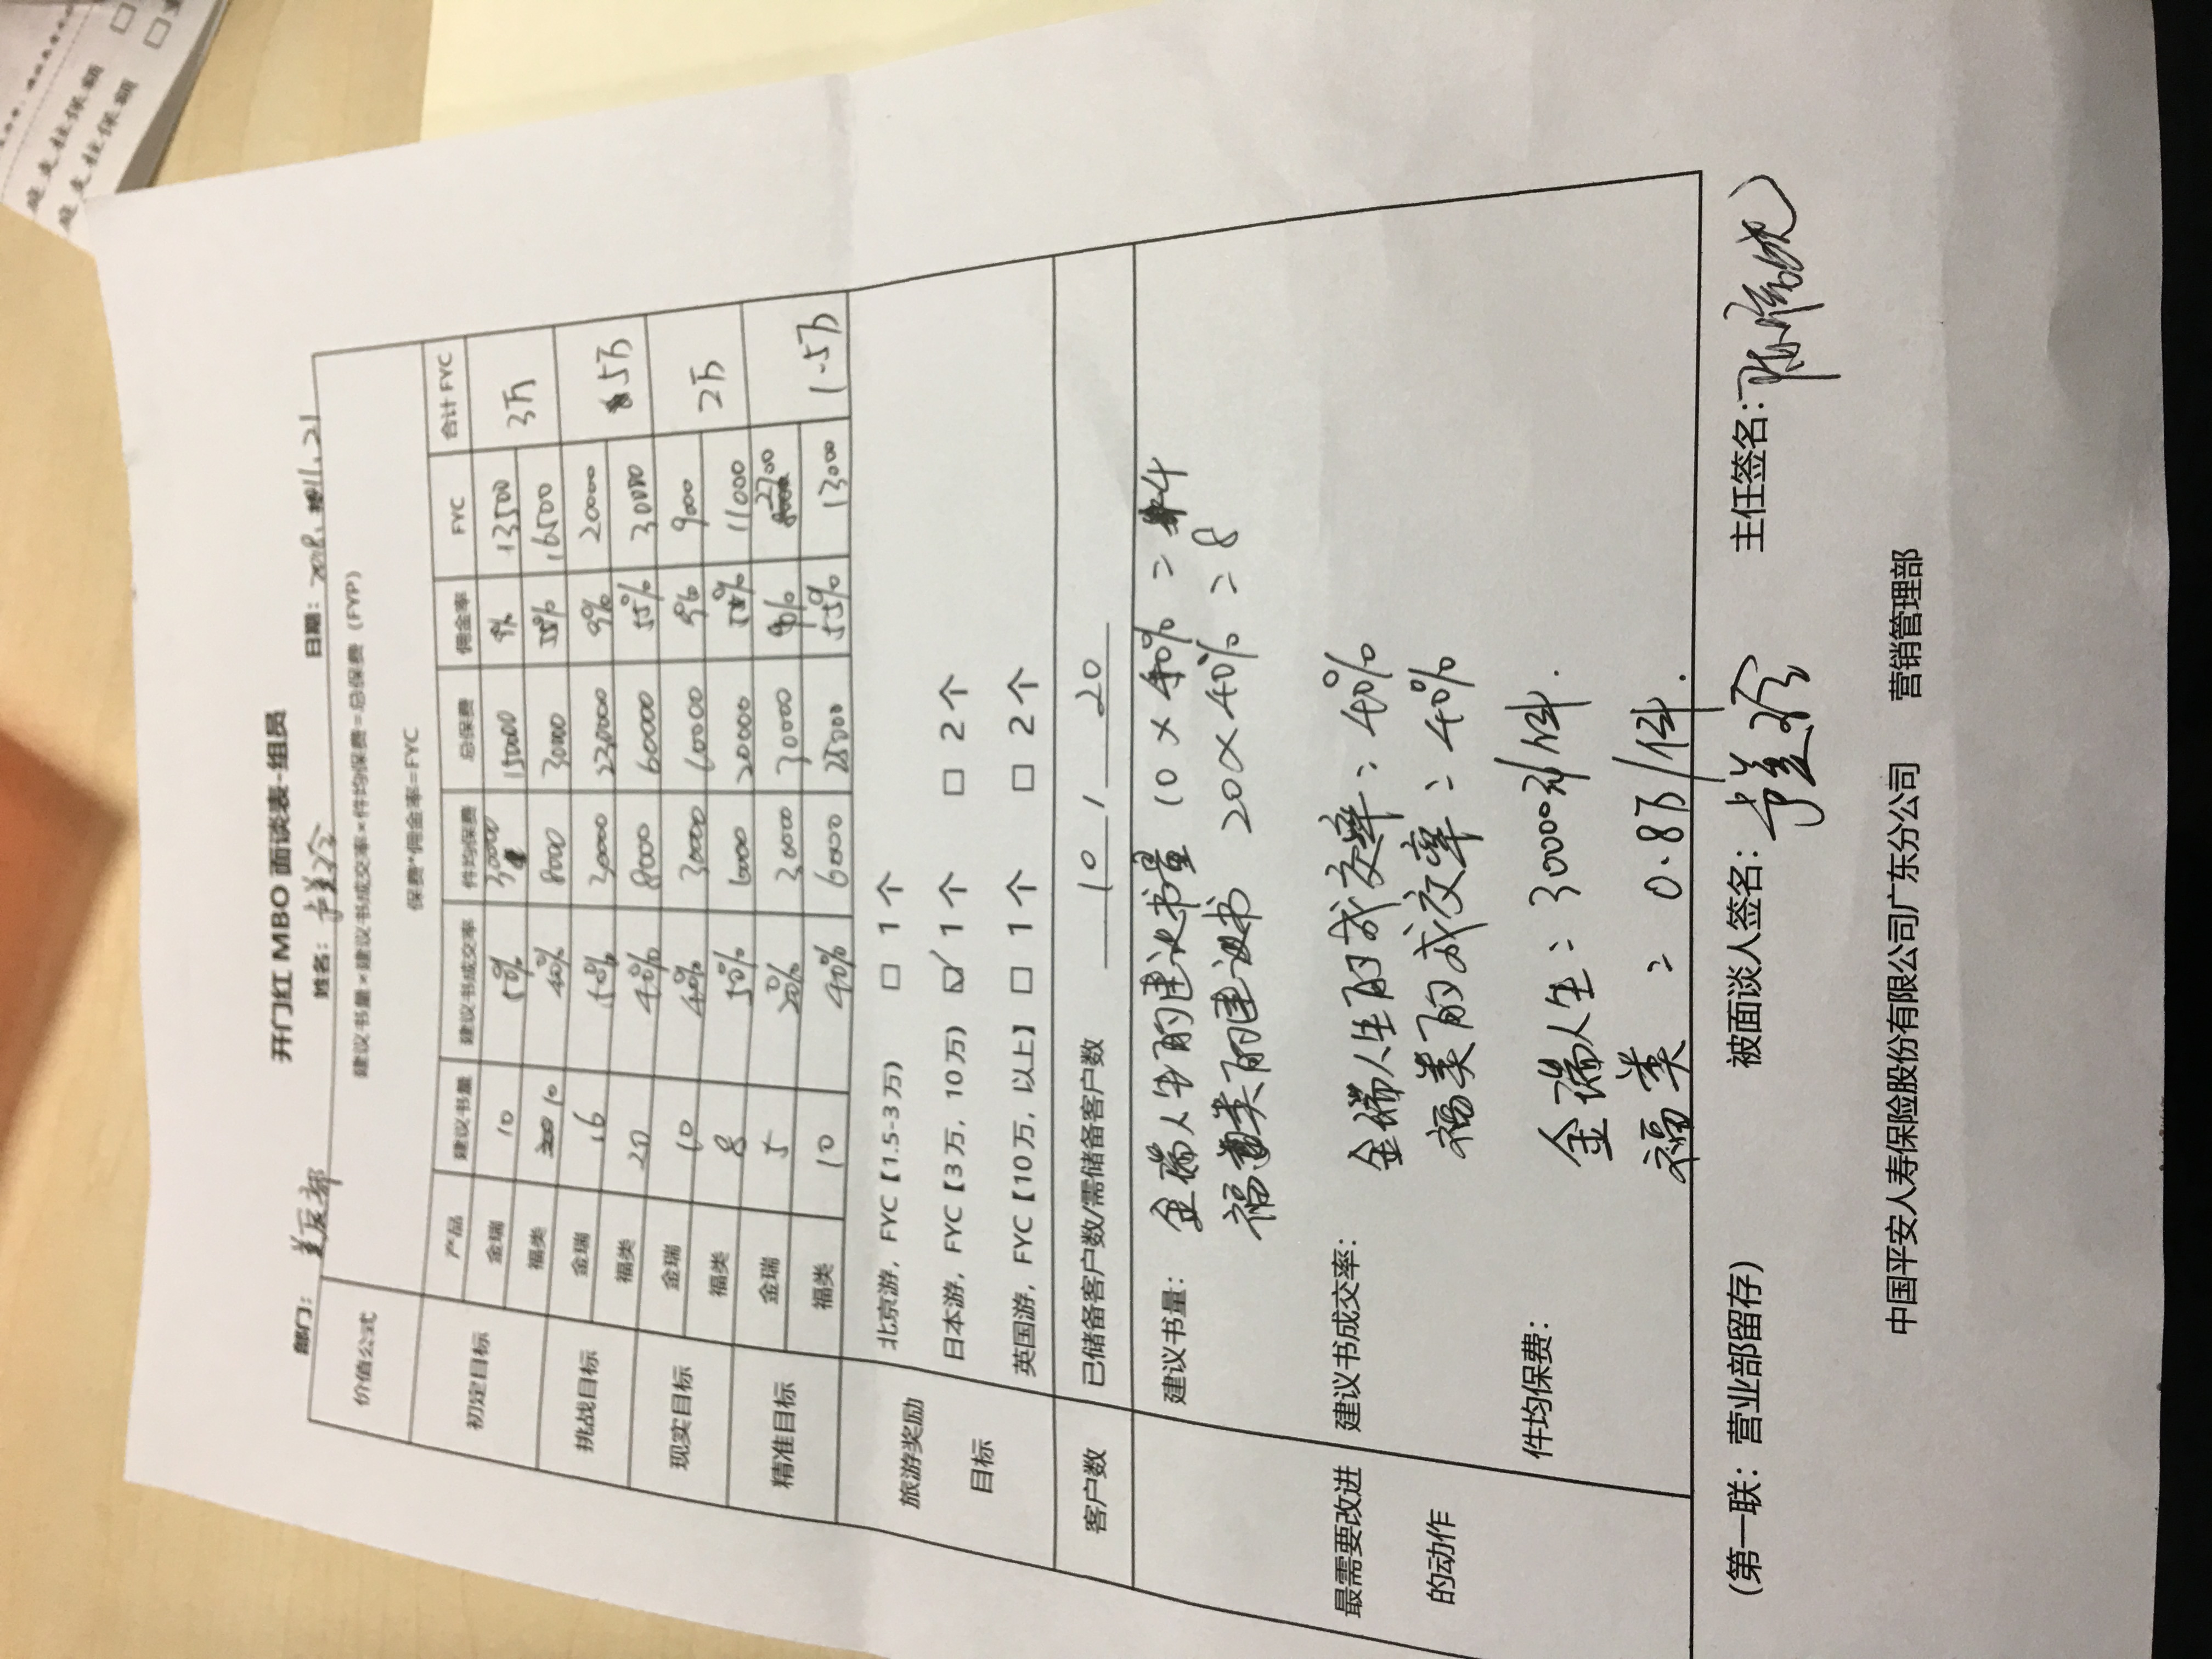 开门红 MBO 面谈表-组员
部门： 姓名： 日期：2018.11.21
价值公式 建议书量×建议书成交率×件均保费=总保费（FYP）
保费*佣金率=FYC
产品 建议书量 建议书成交率 件均保费 总保费 佣金率 FYC 合计 FYC
初定目标 金瑞 10 50% 30000 150000 9% 13500 3万
福类 10 40% 8000 30000 55% 16500
挑战目标 金瑞 16 50% 30000 220000 9% 20000 5万
福类 20 40% 8000 60000 55% 30000
现实目标 金瑞 10 40% 30000 100000 9% 9000 2万
福类 8 50% 6000 20000 55% 11000
精准目标 金瑞 5 20% 30000 30000 9% 2700 1.5万
福类 10 40% 6000 25000 55% 13000
旅游奖励目标 北京游，FYC【1.5-3 万） □ 1 个
日本游，FYC【3 万，10 万） ☑ 1 个 □ 2 个
英国游，FYC【10 万，以上】 □ 1 个 □ 2 个
客户数 已储备客户数/需储备客户数 10 / 20
最需要改进的动作
建议书量： 金瑞人生的建议书量 10×40%=4
福类的建议书 20×40%=8
建议书成交率： 金瑞人生的成交率：40%
福类的成交率：40%
件均保费： 金瑞人生：30000元/件.
福类：0.8万/件.
(第一联：营业部留存) 被面谈人签名： 主任签名：
中国平安人寿保险股份有限公司广东分公司 营销管理部